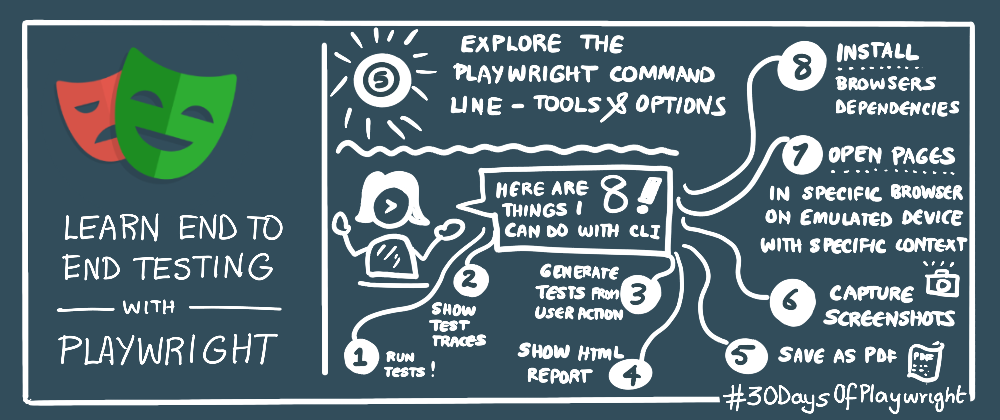 LEARN END TO
END TESTING
WITH
PLAYWRIGHT
5
EXPLORE THE
PLAYWRIGHT COMMAND
LINE - TOOLS & OPTIONS
HERE ARE 8!
THINGS I
CAN DO WITH CLI
1
RUN
TESTS!
2
SHOW
TEST
TRACES
3
GENERATE
TESTS FROM
USER ACTION
4
SHOW HTML
REPORT
5
SAVE AS PDF
PDF
6
CAPTURE
SCREENSHOTS
7
OPEN PAGES
IN SPECIFIC BROWSER
ON EMULATED DEVICE
WITH SPECIFIC CONTEXT
8
INSTALL
BROWSERS
DEPENDENCIES
#30DaysOfPlaywright